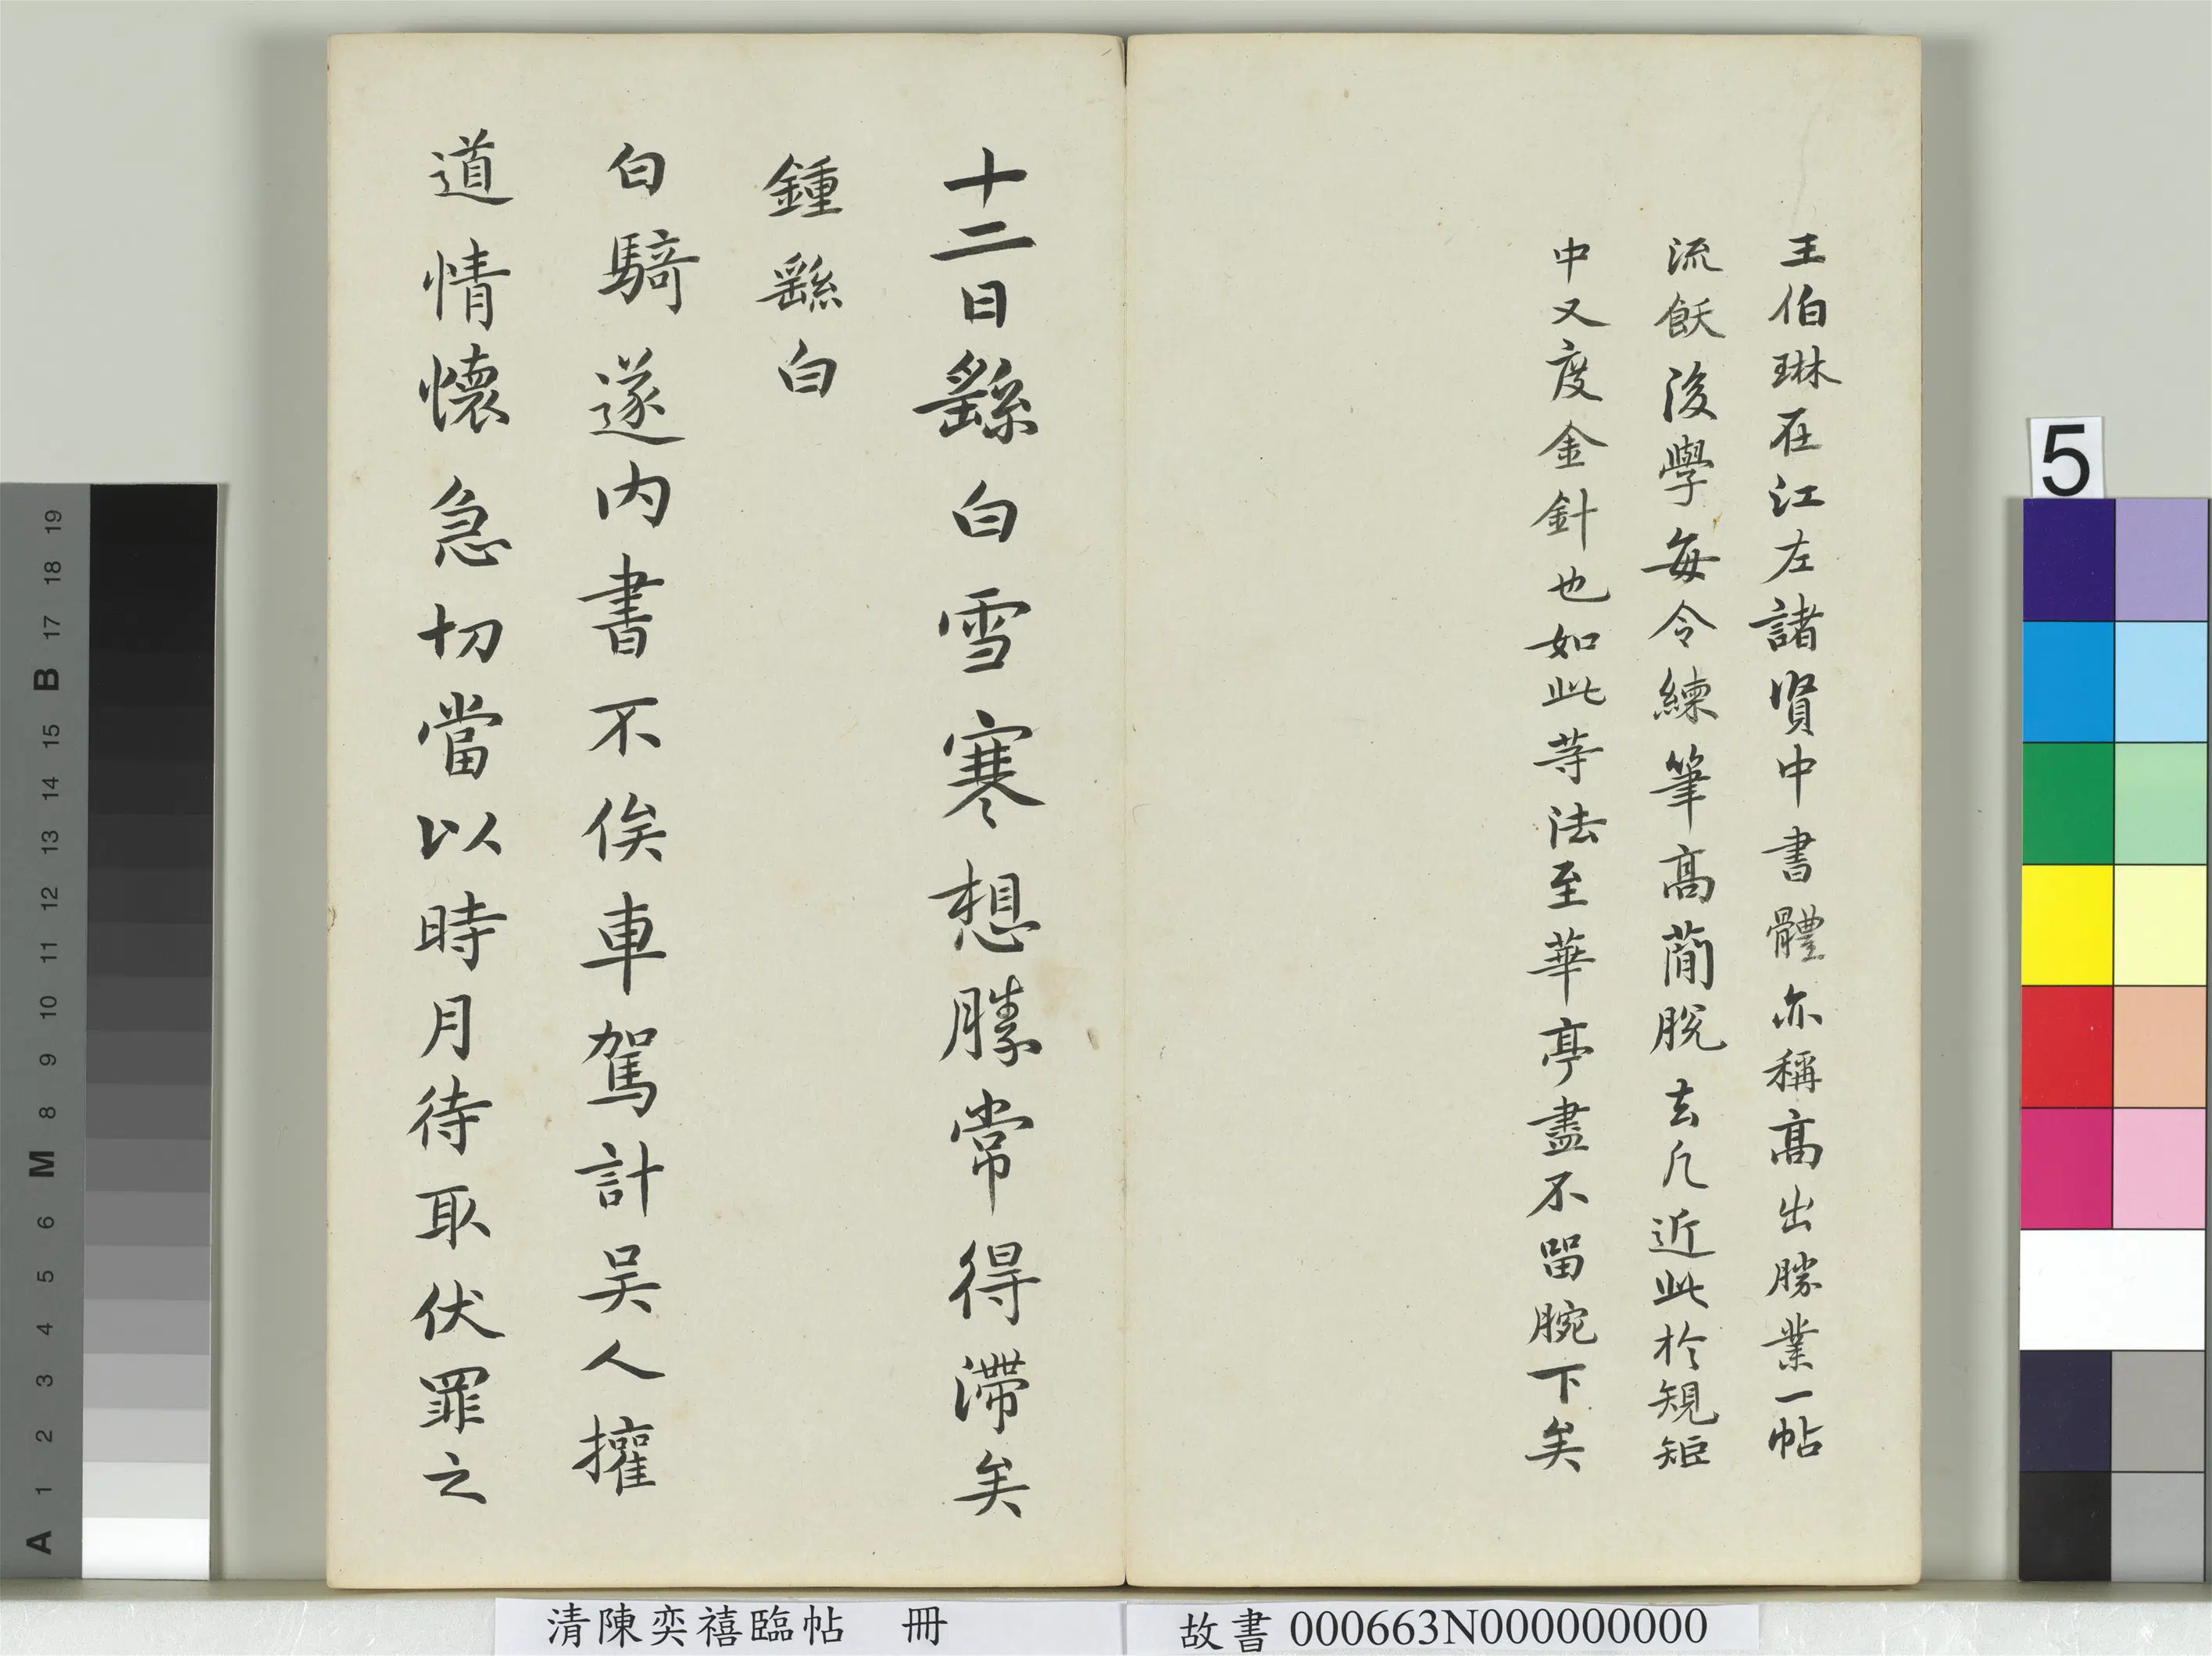 王伯琳在江左諸賢中書體亦稱髙出勝業一帖
流飫後學每令練筆髙蕳脫去凢近此於規矩
中又度金針也如此等法至華亭盡不留腕下矣
十二日繇白雪寒想勝常得滯矣
鍾繇白
白騎遂內書不俟車駕計吴人擁
道情懷急切當以時月待取伏罪之
清陳奕禧臨帖 冊
故書 000663N000000000
5
19
18
17
B
15
14
13
12
11
10
9
8
M
6
5
4
3
2
1
A